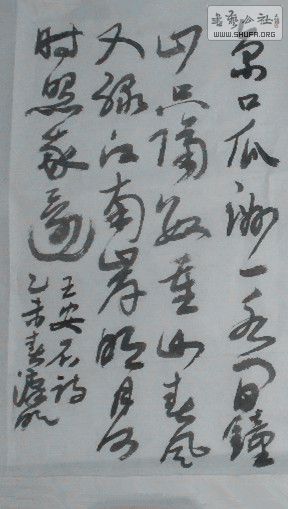 京口瓜洲一水间鐘
山只隔数重山春风
又绿江南岸明月何
时照我还
王安石诗
乙未春
書藝公社
WWW.SHUFA.ORG